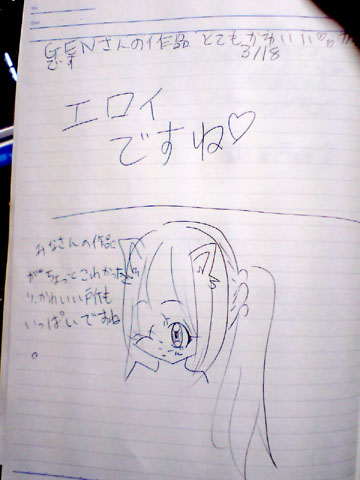 GENさんの作品 とてもかわいい
です 3/18
エロイ
ですね♡
みなさんの作品
がちょっとこわかった
り、かわいい所も
いっぱいですね
。